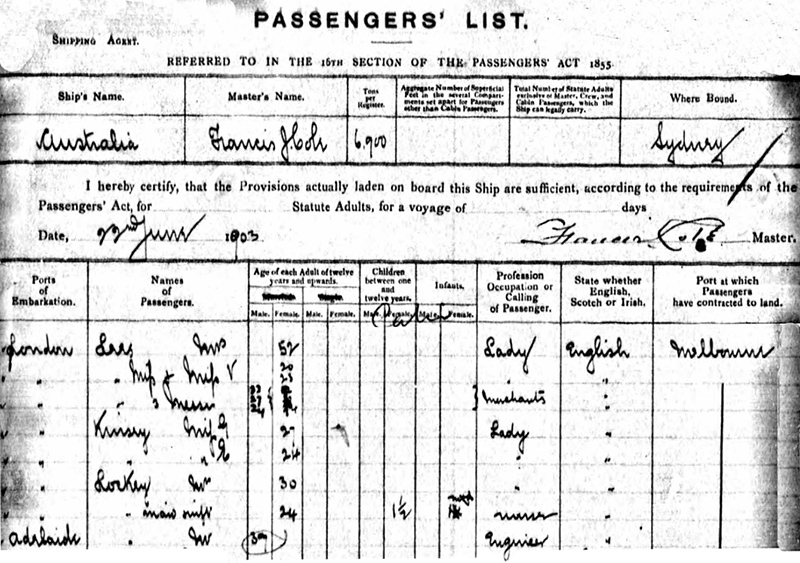 PASSENGERS' LIST.
SHIPPING AGENT.
REFERRED TO IN THE 16TH SECTION OF THE PASSENGERS' ACT 1855
Ship's Name. Master's Name. Tons per Register. Aggregate Number of Superficial Feet in the several Compartments set apart for Passengers other than Cabin Passengers. Total Number of Statute Adults exclusive of Master, Crew, and Cabin Passengers, which the Ship can legally carry. Where Bound.
Australia Francis J Cole 6,900 Sydney
I hereby certify, that the Provisions actually laden on board this Ship are sufficient, according to the requirements of the
Passengers' Act, for Statute Adults, for a voyage of days
Date, 22nd June 1903 Francis Cole Master.
Ports of Embarkation. Names of Passengers. Age of each Adult of twelve years and upwards. Children between one and twelve years. Infants. Profession Occupation or Calling of Passenger. State whether English, Scotch or Irish. Port at which Passengers have contracted to land.
Male. Female. Male. Female. Male. Female. Male. Female.
London Mrs 52 Lady English Melbourne
" " Miss & Miss V 20 " "
" " 3 Messrs } Merchants "
" Kinsey Miss 27 Lady "
" " " 24 " "
" Lockey Mrs 30 " "
" " 24 1½ "
Adelaide " Mr 39 Engineer "